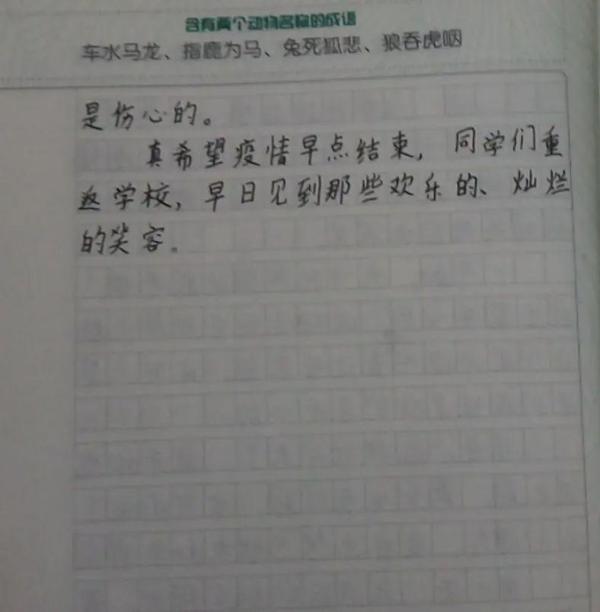 含有两个动物名称的成语
车水马龙、指鹿为马、兔死狐悲、狼吞虎咽
是伤心的。
真希望疫情早点结束,同学们重
返学校,早日见到那些欢乐的、灿烂
的笑容。